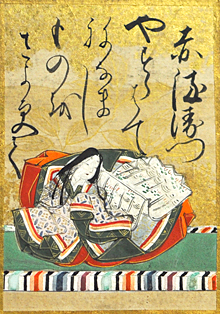 赤染衛門
やすらはて
ねなまし
ものを
さよ更て